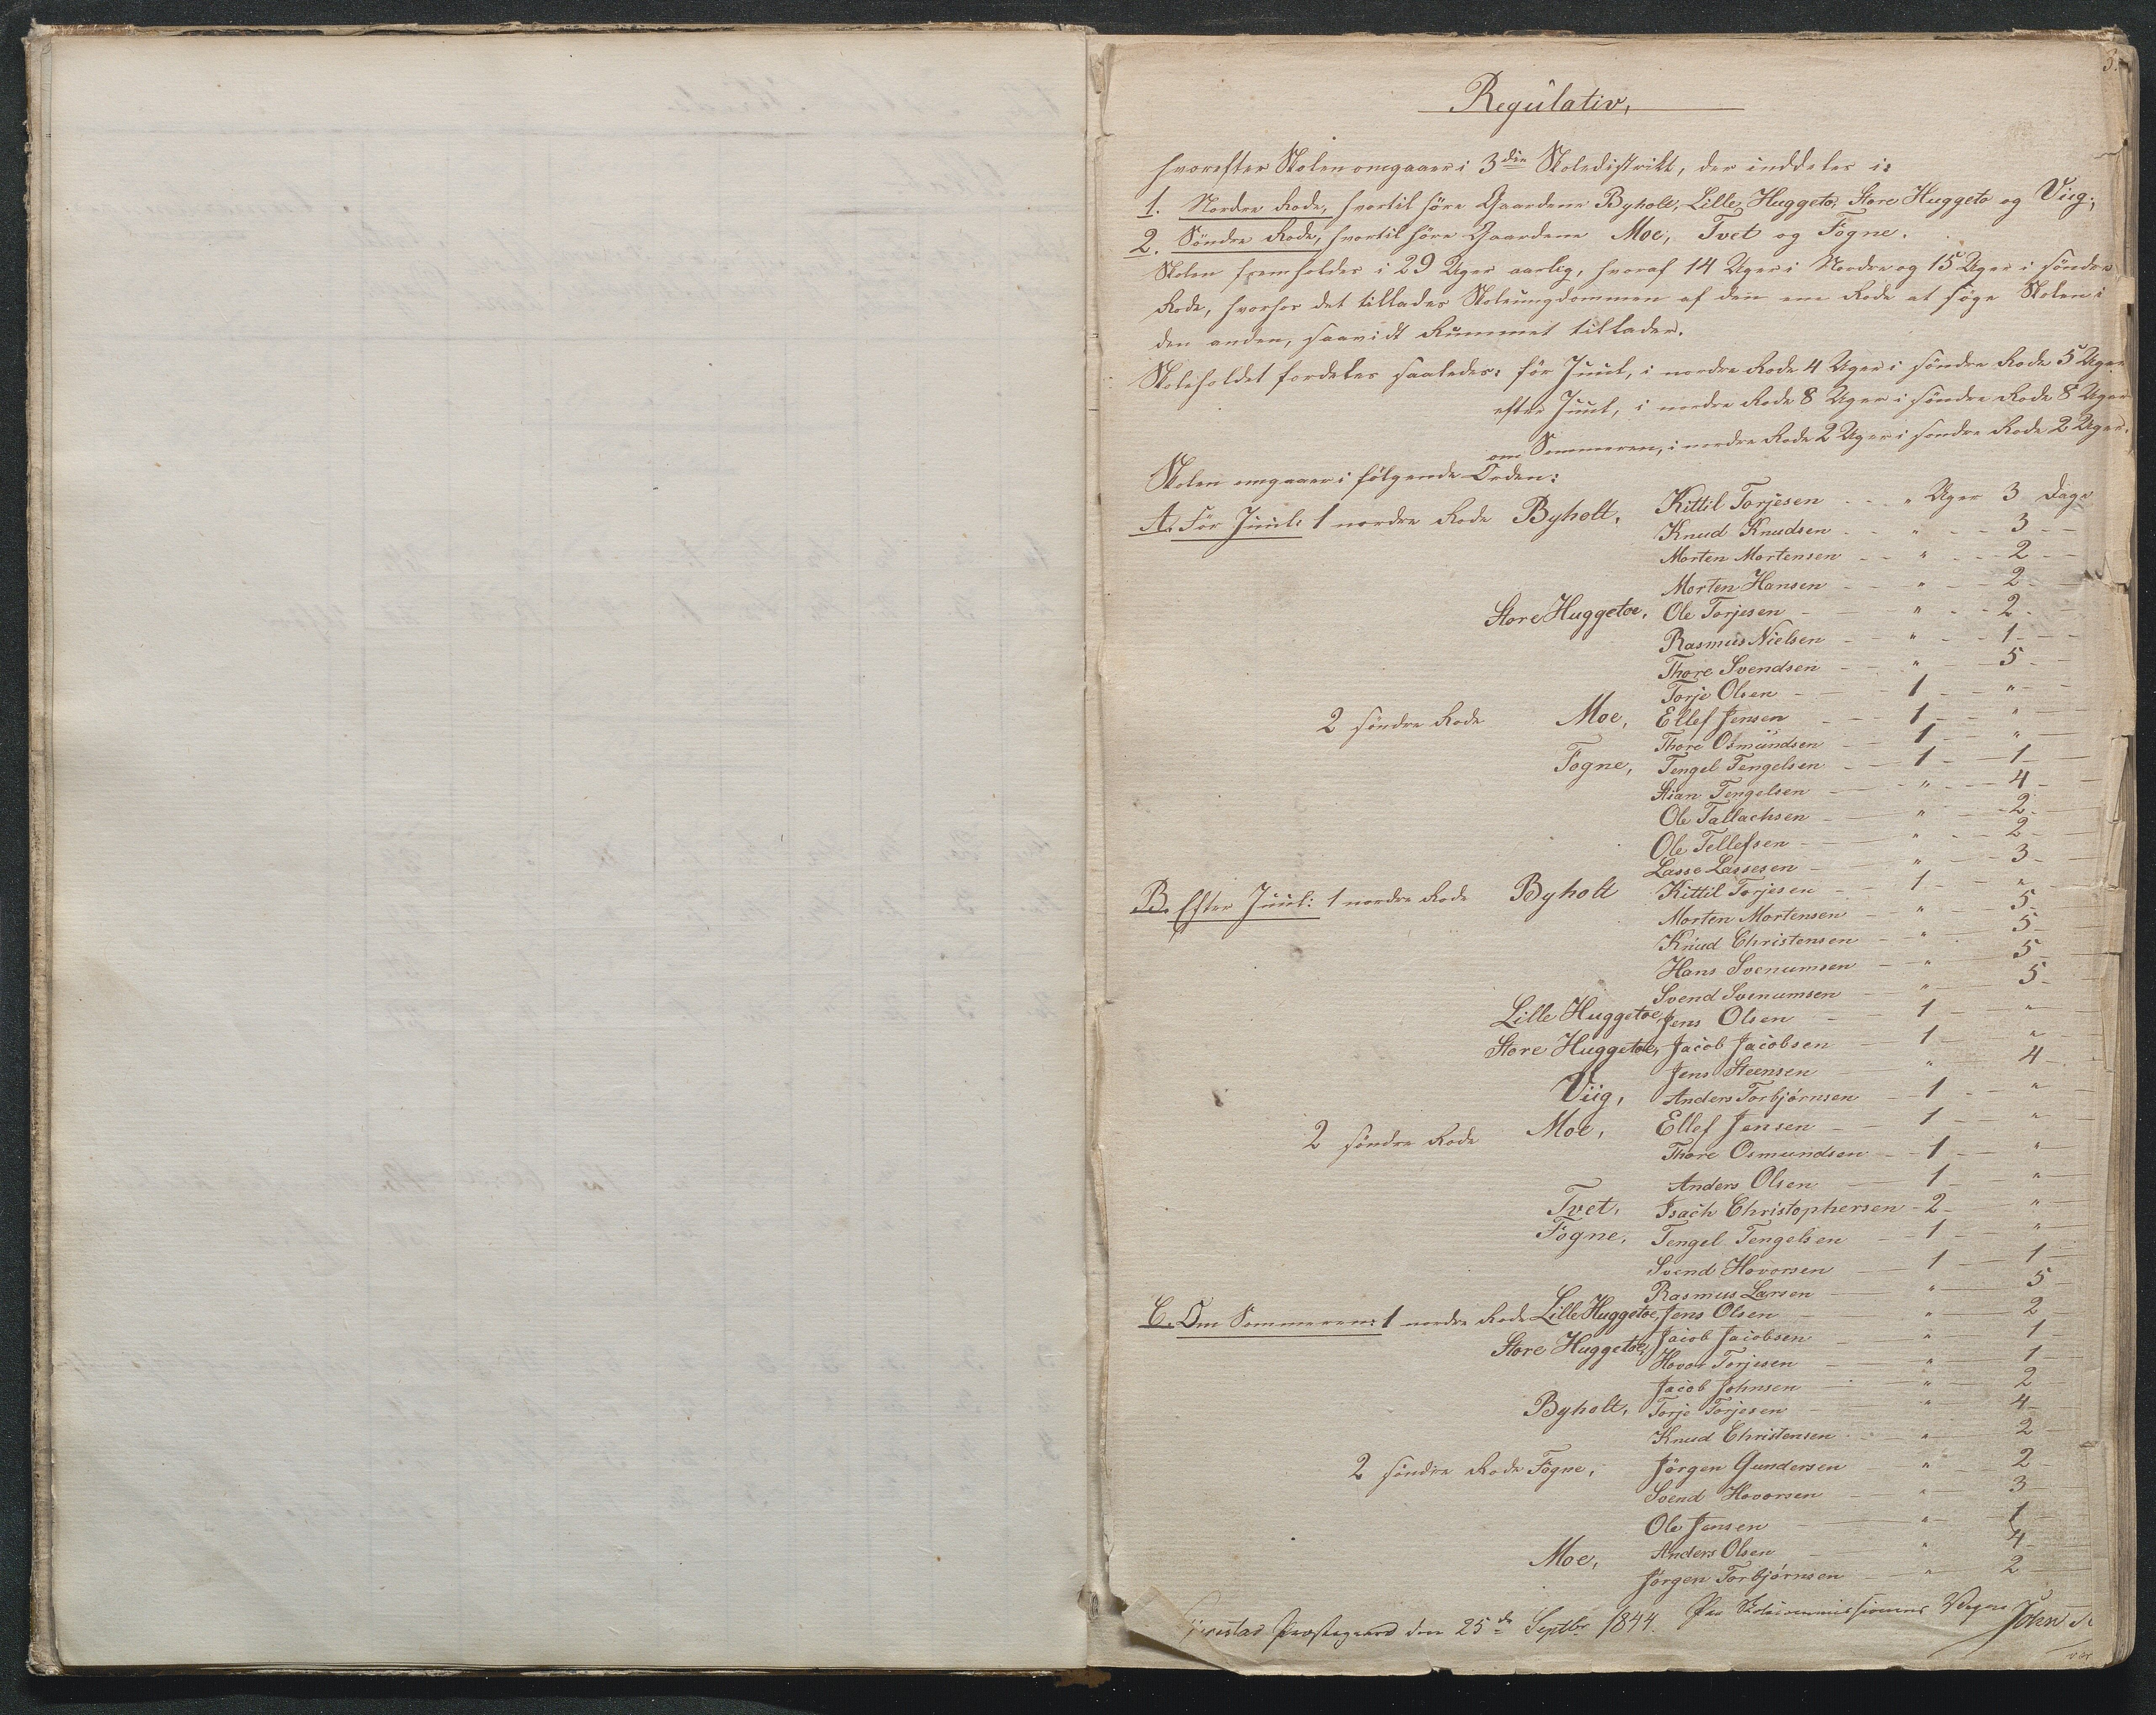 3.
Regulativ,
hvorefter Skolen omgaaer i 3die Skoledistrikt, der inddeles i:
1. Nordre Rode, hvortil høre Gaardene Byholt, Lille Huggeto, Store Huggeto og Viig;
2. Søndre Rode, hvortil høre Gaardene Moe, Tvet og Fogne.
Skolen fremholdes i 29 Uger aarlig, hvoraf 14 Uger i Nordre og 15 Uger i søndre
Rode, hvorhos det tillades Skoleungdommen af den ene Rode at søge Skolen i
den anden, saavidt Rummet tillader.
Skoleholdet fordeles saaledes: før Juul, i nordre Rode 4 Uger i søndre Rode 5 Uger
efter Juul, i nordre Rode 8 Uger i søndre Rode 8 Uger
om Sommeren, i nordre Rode 2 Uger i søndre Rode 2 Uger.
Skolen omgaaer i følgende Orden:
A. Før Juul: 1 nordre Rode Byholt, Kittil Torjesen - - " Uger 3 Dage
Knud Knudsen - - " - - 3 - -
Morten Mortensen - - " - - 2 - -
Morten Hansen - - " - - 2 - -
Store Huggetoe, Ole Torjesen - - " - - 2 -
Rasmus Nielsen - - " - - 1 - -
Thore Svendsen - - " - - 5 - -
Torje Olsen - - 1 - - " - -
2 søndre Rode Moe, Ellef Jensen - - 1 - - " - -
Thore Osmundsen - - 1 - - " - -
Fogne, Tengel Tengelsen - - 1 - - 1 - -
Stian Tengelsen - - " - - 4 - -
Ole Tallachsen - - " - - 2 - -
Ole Tellefsen - - " - - 2 - -
Lasse Lassesen - - " - - 3 - -
B. Efter Juul: 1 nordre Rode Byholt Kittil Torjesen - - 1 - - " -
Morten Mortensen - - " - - 5 -
Knud Christensen - - " - - 5 -
Hans Svenumsen - - " - - 5 -
Svend Svenumsen - - " - - 5 -
Lille Huggetoe, Jens Olsen - - 1 - - " -
Store Huggetoe, Jacob Jacobsen - - 1 - - " -
Jens Steensen - - " - - 4 -
Viig, Anders Torbjørnsen - - 1 - - " -
2 søndre Rode Moe, Ellef Jensen - - 1 - - " -
Thore Osmundsen - - 1 - - " -
Anders Olsen - - 1 - - " -
Tvet, Isach Christophersen - 2 - - " -
Fogne, Tengel Tengelsen - - 1 - - " -
Svend Hovorsen - - 1 - - 1 -
Rasmus Larsen - - " - - 5 -
C. Om Sommeren: 1 nordre Rode Lille Huggetoe, Jens Olsen - - " - - 2 -
Store Huggetoe, Jacob Jacobsen - - " - - 1 -
Hovor Torjesen - - " - - 1 -
Jacob Johnsen - - " - - 2 -
Byholt, Torje Torjesen - - " - - 4 -
Knud Christensen - - " - - 2 -
2 søndre Rode Fogne, Jørgen Gundersen - - " - - 2 -
Svend Hovorsen - - " - - 3 -
Ole Jensen - - " - - 1 -
Moe, Anders Olsen - - " - - 4 -
Jørgen Torbjørnsen - - " - - 2 -
Præstegaard den 25de Septbr 1844. Paa Skolecommissionens Vegne John